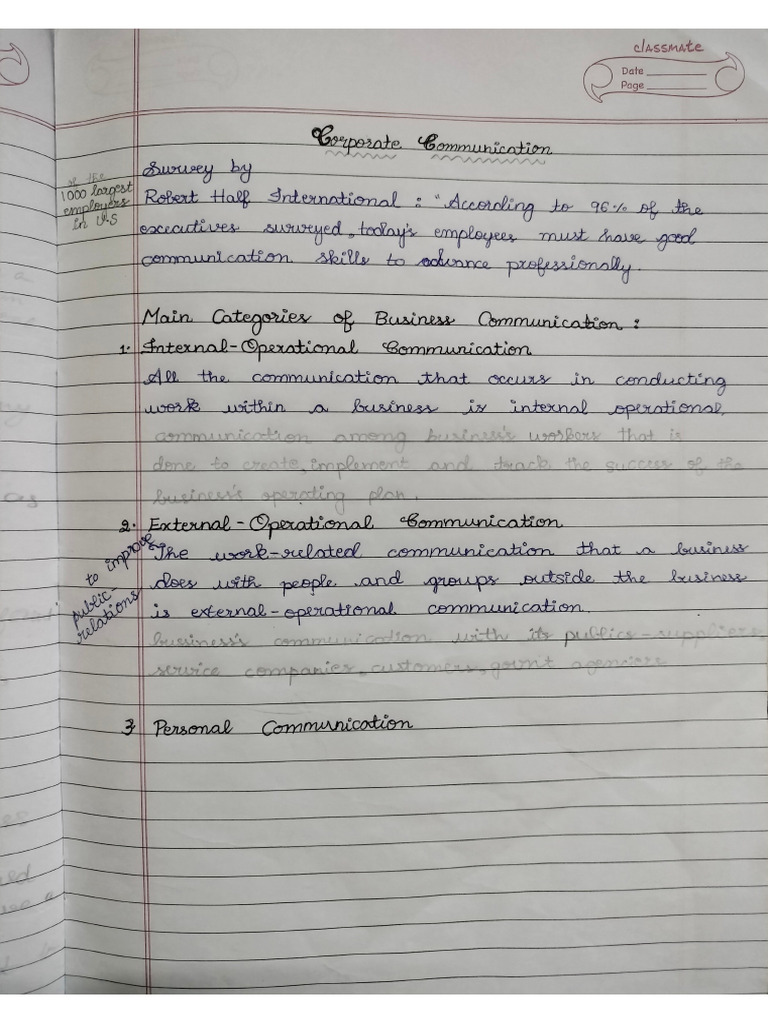 classmate
Date
Page
Corporate Communication
of the
1000 largest
employers
in U.S
Survey by
Robert Half International : "According to 96% of the
executives surveyed, today's employees must have good
communication skills to advance professionally.
Main Categories of Business Communication :
1. Internal-Operational Communication
All the communication that occurs in conducting
work within a business is internal operational.
communication among business's workers that is
done to create, implement and track the success of the
business's operating plan.
2. External-Operational Communication
to improve
public-
relations
The work-related communication that a business
does with people and groups outside the business
is external-operational communication.
business's communication with its publics-suppliers,
service companies, customers, govnt agencies
3. Personal Communication